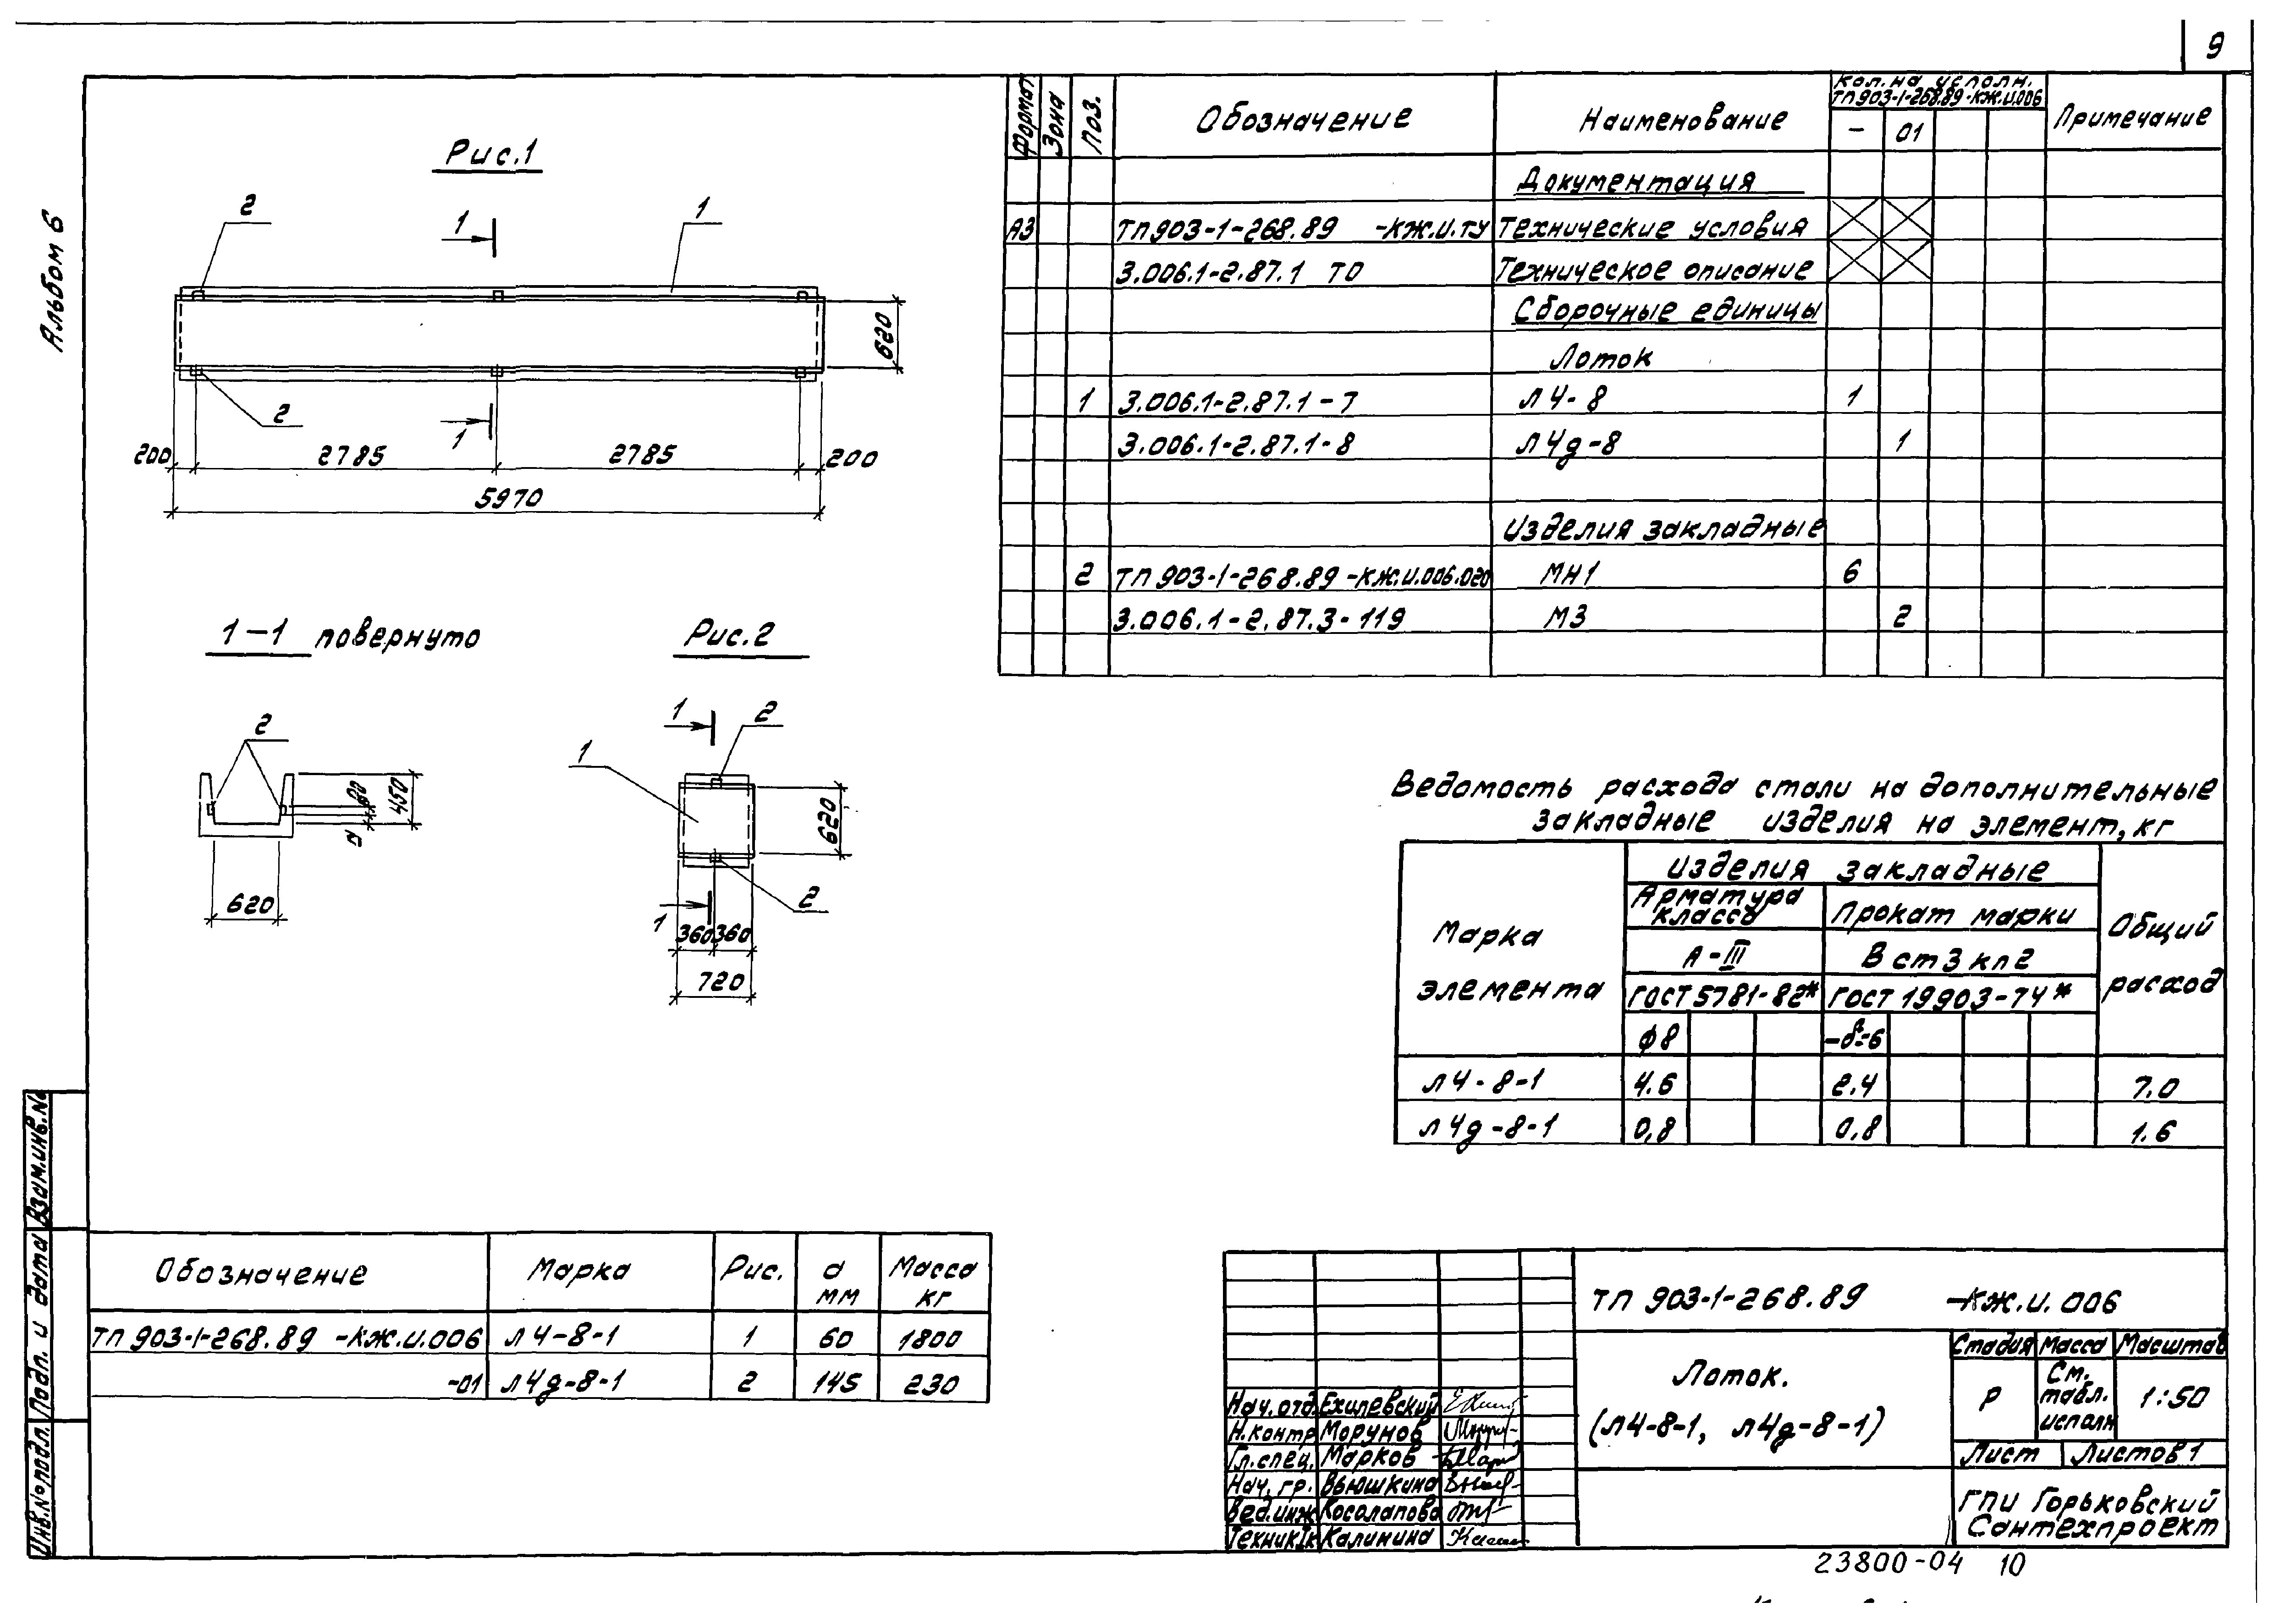 9
Альбом 6
Рис.1
2
1
1
620
2
1
200
2785
2785
200
5970
1-1 повернуто
2
450
а
620
Рис.2
1
2
1
620
2
1
360
360
720
Формат
Зона
Поз.
Обозначение
Наименование
Кол. на исполн.
ТП903-1-268.89-КЖ.И.006
-
01
Примечание
Документация
А3 ТП903-1-268.89 -КЖ.И.ТУ Технические условия
3.006.1-2.87.1 ТО Техническое описание
Сборочные единицы
Лоток
1 3.006.1-2.87.1-7 Л4-8 1
3.006.1-2.87.1-8 Л4д-8 1
Изделия закладные
2 ТП903-1-268.89-КЖ.И.006.020 МН1 6
3.006.1-2.87.3-119 М3 2
Ведомость расхода стали на дополнительные
закладные изделия на элемент, кг
Марка
элемента
Изделия закладные
Арматура
класса
Прокат марки
А-III
Вст3кп2
ГОСТ 5781-82*
ГОСТ 19903-74*
Общий
расход
ф8
-δ=6
Л4-8-1 4.6 2.4 7.0
Л4д-8-1 0,8 0,8 1.6
Обозначение Марка Рис. а мм Масса кг
ТП 903-1-268.89 -КЖ.И.006 Л4-8-1 1 60 1800
-01 Л4д-8-1 2 145 230
ТП 903-1-268.89 -КЖ.И.006
Лоток.
(Л4-8-1, Л4д-8-1)
Стадия Масса Масштаб
Р
См.
табл.
исполн
1:50
Лист Листов 1
ГПИ Горьковский
Сантехпроект
Нач. отд. Ехилевский
Н.контр Морунов
Гл.спец. Марков
Нач. гр. Вьюшкина
Вед.инж Косолапова
Техник Iк Калинина
Взам.инв.№
Подп. и дата
Инв.№подл.
23800-04 10